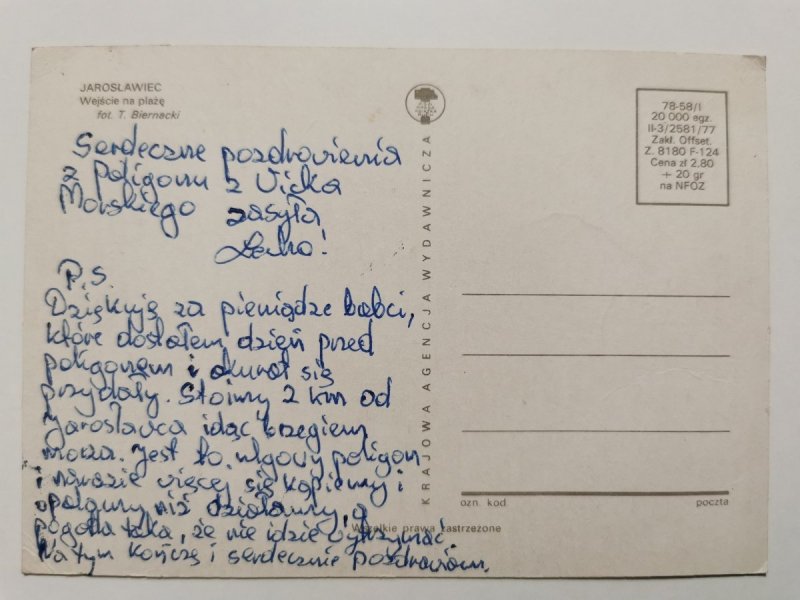 JAROSŁAWIEC
Wejście na plażę
fot. T. Biernacki
Serdeczne pozdrowienia
z Poligonu z Wicka
Morskiego zasyła
Lecho!
P.S.
Dziękuję za pieniądze babci,
które dostałem dzień przed
poligonem i akurat się
przydały. Stoimy 2 km od
Jarosławca idąc brzegiem
morza. Jest to ulgowy poligon
i narazie więcej się kąpiemy i
opalamy niż działamy, a
pogoda taka, że nie idzie wytrzymać.
Na tym kończę i serdecznie pozdrawiam.
KRAJOWA AGENCJA WYDAWNICZA
78-58/I
20 000 egz.
II-3/2581/77
Zakł. Offset.
Z. 8180 F-124
Cena zł 2,80
+ 20 gr
na NFOZ
ozn. kod poczta
Wszelkie prawa zastrzeżone